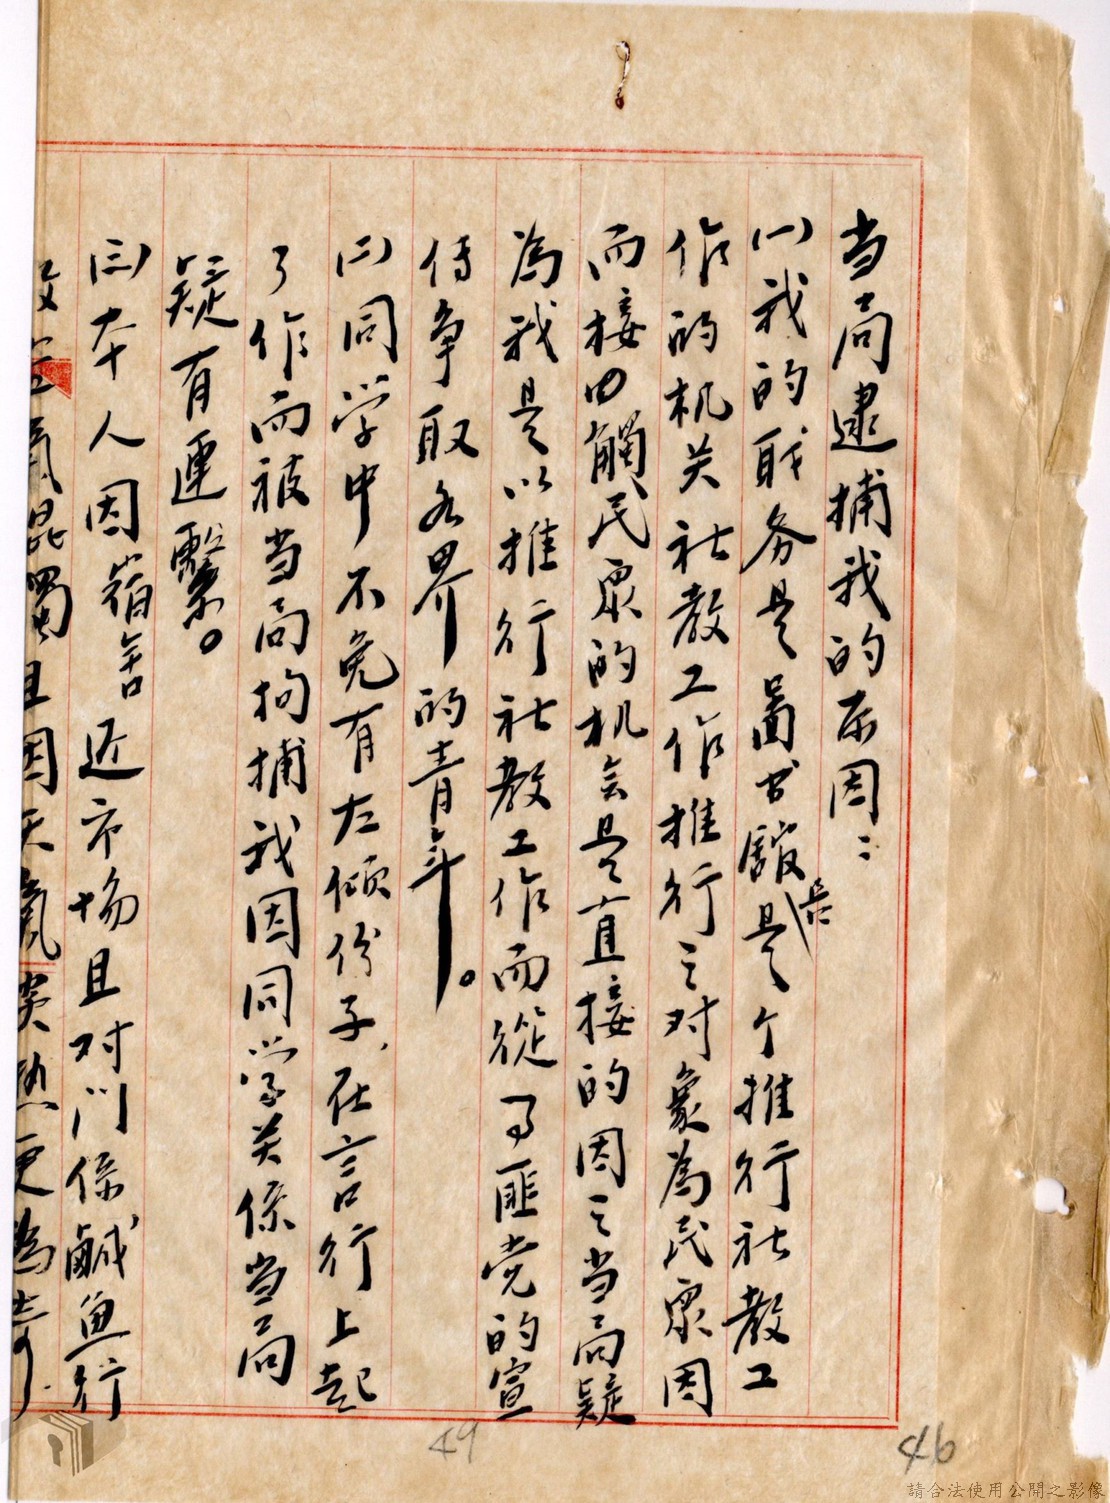 当局逮捕我的原因：
㈠我的职务是圖书館員是个推行社教工
作的机关社教工作推行之对象為民眾因
而接触觸民眾的机会是直接的因之当局疑
為我是以推行社教工作而從事匪党的宣
传争取各界的青年。
㈡同学中不免有左倾份子，在言行上起
了作而被当局拘捕我因同学关係当局
疑有連繫。
㈢本人因宿舍近市場且对门係鹹魚行
空氣 且因天氣炎热更為
49
46
請合法使用公開之影像